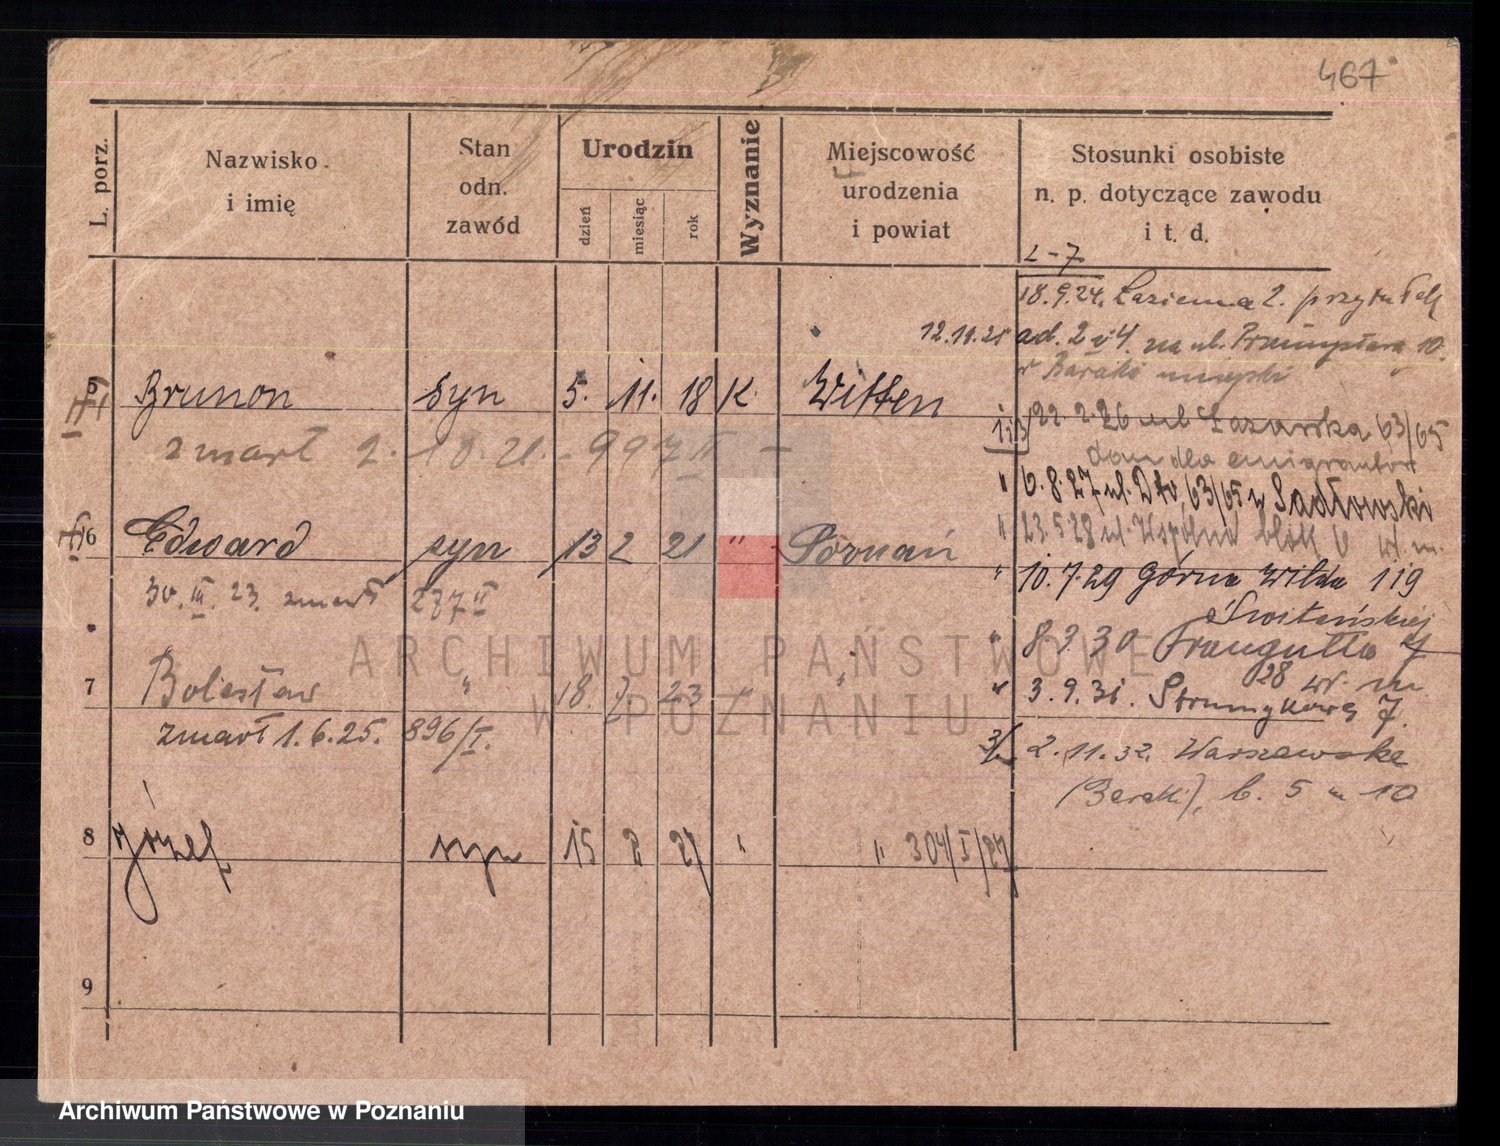 467
L. porz.
Nazwisko
i imię
Stan
odn.
zawód
Urodzin
dzień
miesiąc
rok
Wyznanie
Miejscowość
urodzenia
i powiat
Stosunki osobiste
n. p. dotyczące zawodu
i t. d.
2-7
18.9.24. Łazienna 2. przytułek
12.11.25 ad. 2 v 4. na ul. Przemysława 10.
w Barake miejski
5 Brunon syn 5. 11. 18 K. Witten
zmarł 2. 10. 21. - 997 II -
22.2.26 ul Łazarska 63/65
dom dla emigrantów
" 6.8.27 ul. 63/65 w Sadłowski
6 Edward syn 13 2 21 " Poznań
" 23.5.28 ul. Wspólna blok 6 w. m.
30. III. 23. zmarł 287 II
" 10.7.29 Górna Wilda 119
" 8.9.30 Traugutta
28 w. m.
7 Bolesław " 18. 7 23 " "
" 3.9.31. Strumykowa 7.
zmarł 1.6.25. 896/I.
2.11.32. Warszawska
(Baraki), b. 5 m 10
8 Józef syn 15 2 27 " " 304/I/27
9
ARCHIWUM PAŃSTWOWE
W POZNANIU
Archiwum Państwowe w Poznaniu